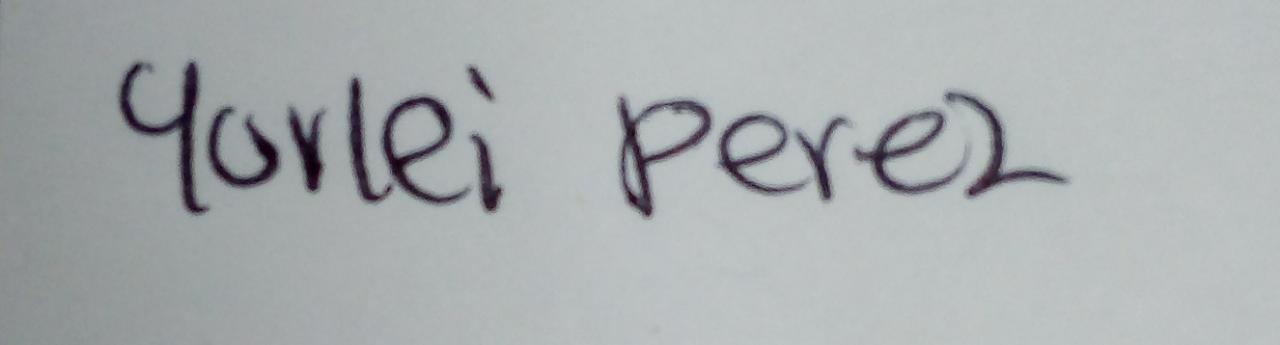 Yorlei perez